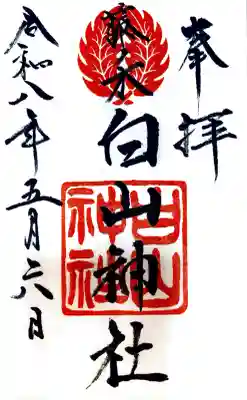 奉拝
藤之木
白山神社
白山
神社
令和八年五月六日